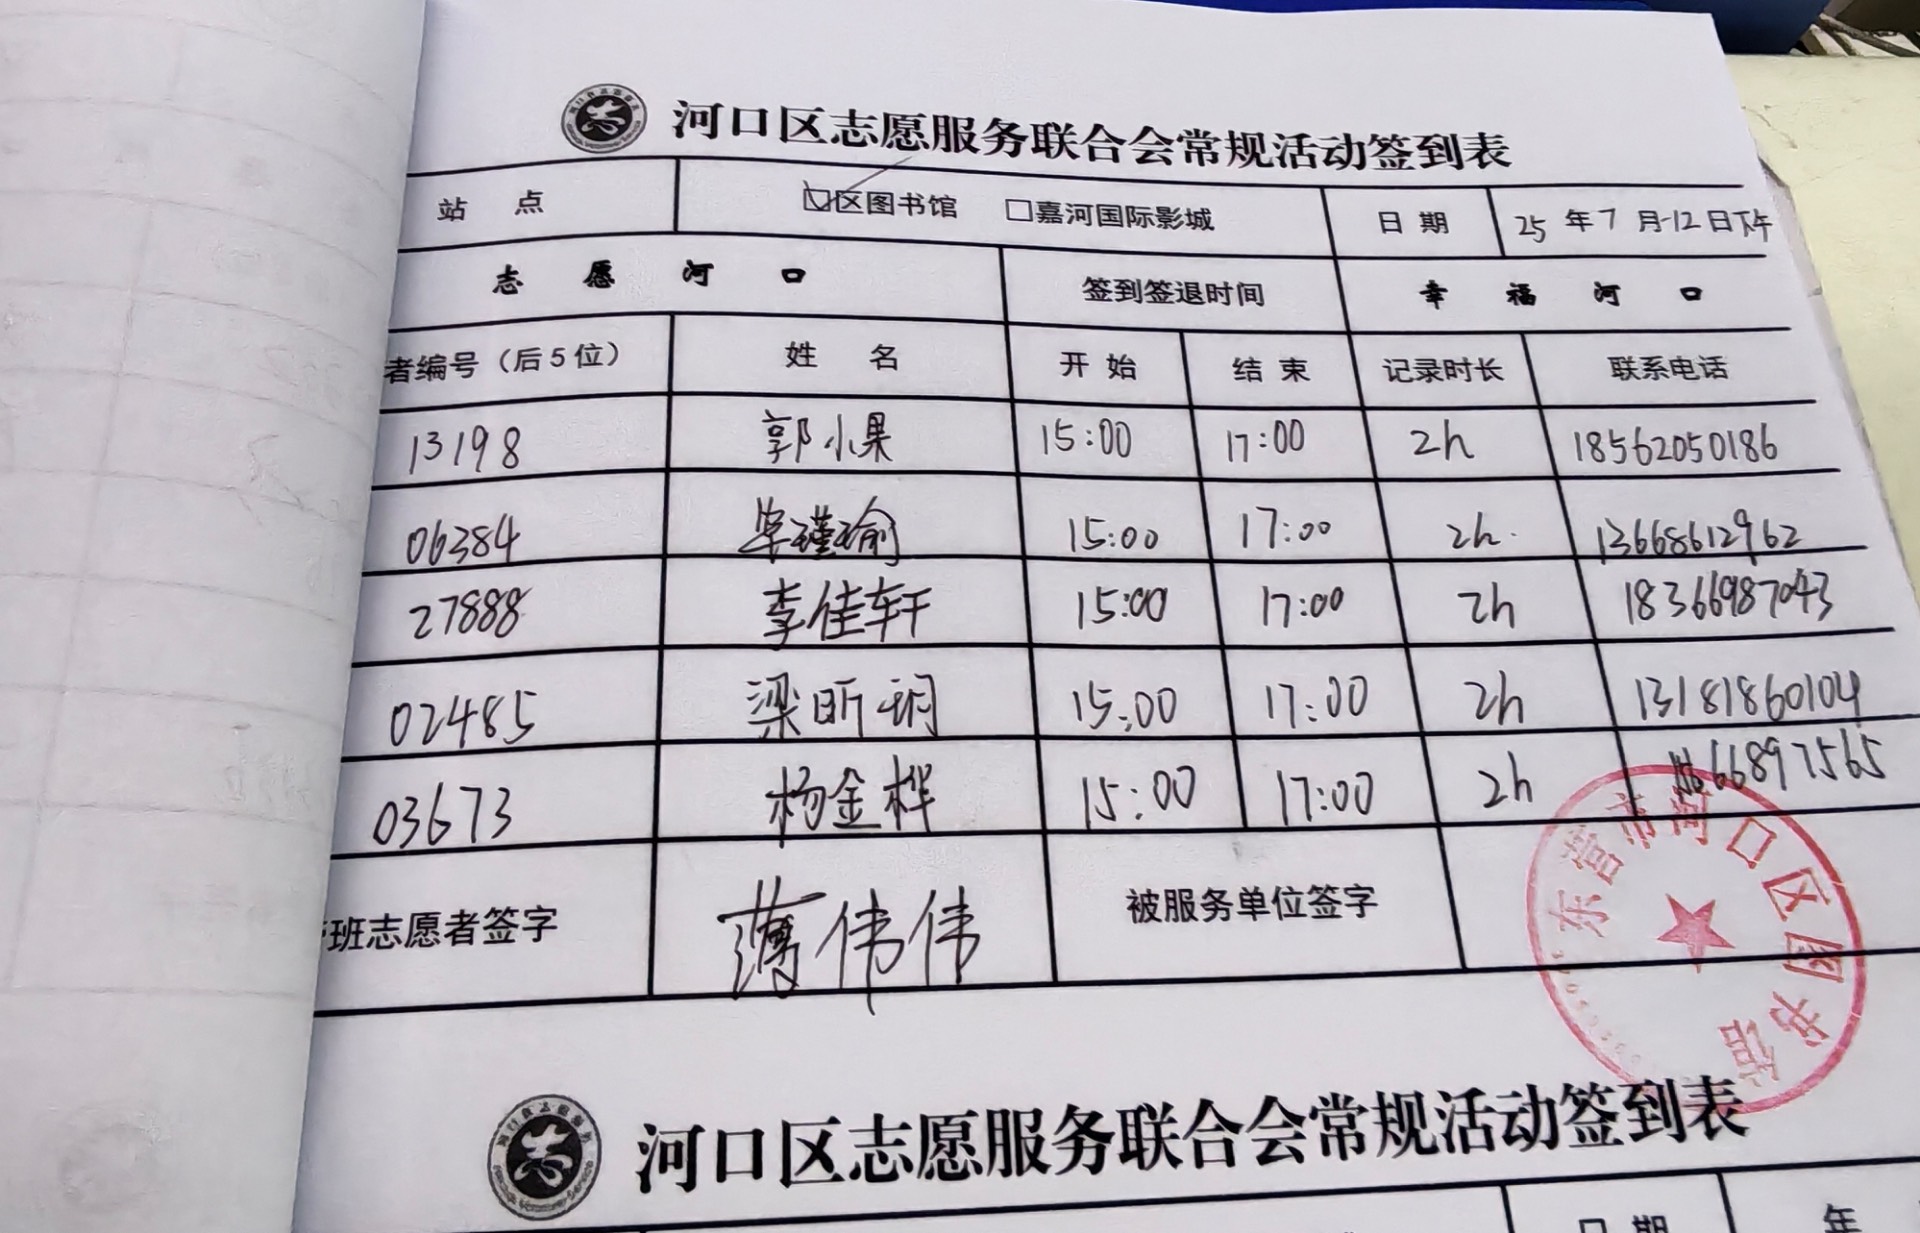 河口区志愿服务联合会常规活动签到表
站 点 区图书馆 □嘉河国际影城 日 期 25 年 7 月 12 日下午
志 愿 河 口 签到签退时间 幸 福 河 口
者编号（后5位） 姓 名 开 始 结 束 记录时长 联系电话
13198 郭小果 15:00 17:00 2h 18562050186
06384 瑾瑜 15:00 17:00 2h. 13668612962
27888 李佳轩 15:00 17:00 2h 18366987043
02485 梁昕玥 15:00 17:00 2h 13181860104
03673 杨金桦 15:00 17:00 2h 66897565
班志愿者签字 薄伟伟 被服务单位签字
东营市河口区图书馆
河口区志愿服务联合会常规活动签到表
日 期 年